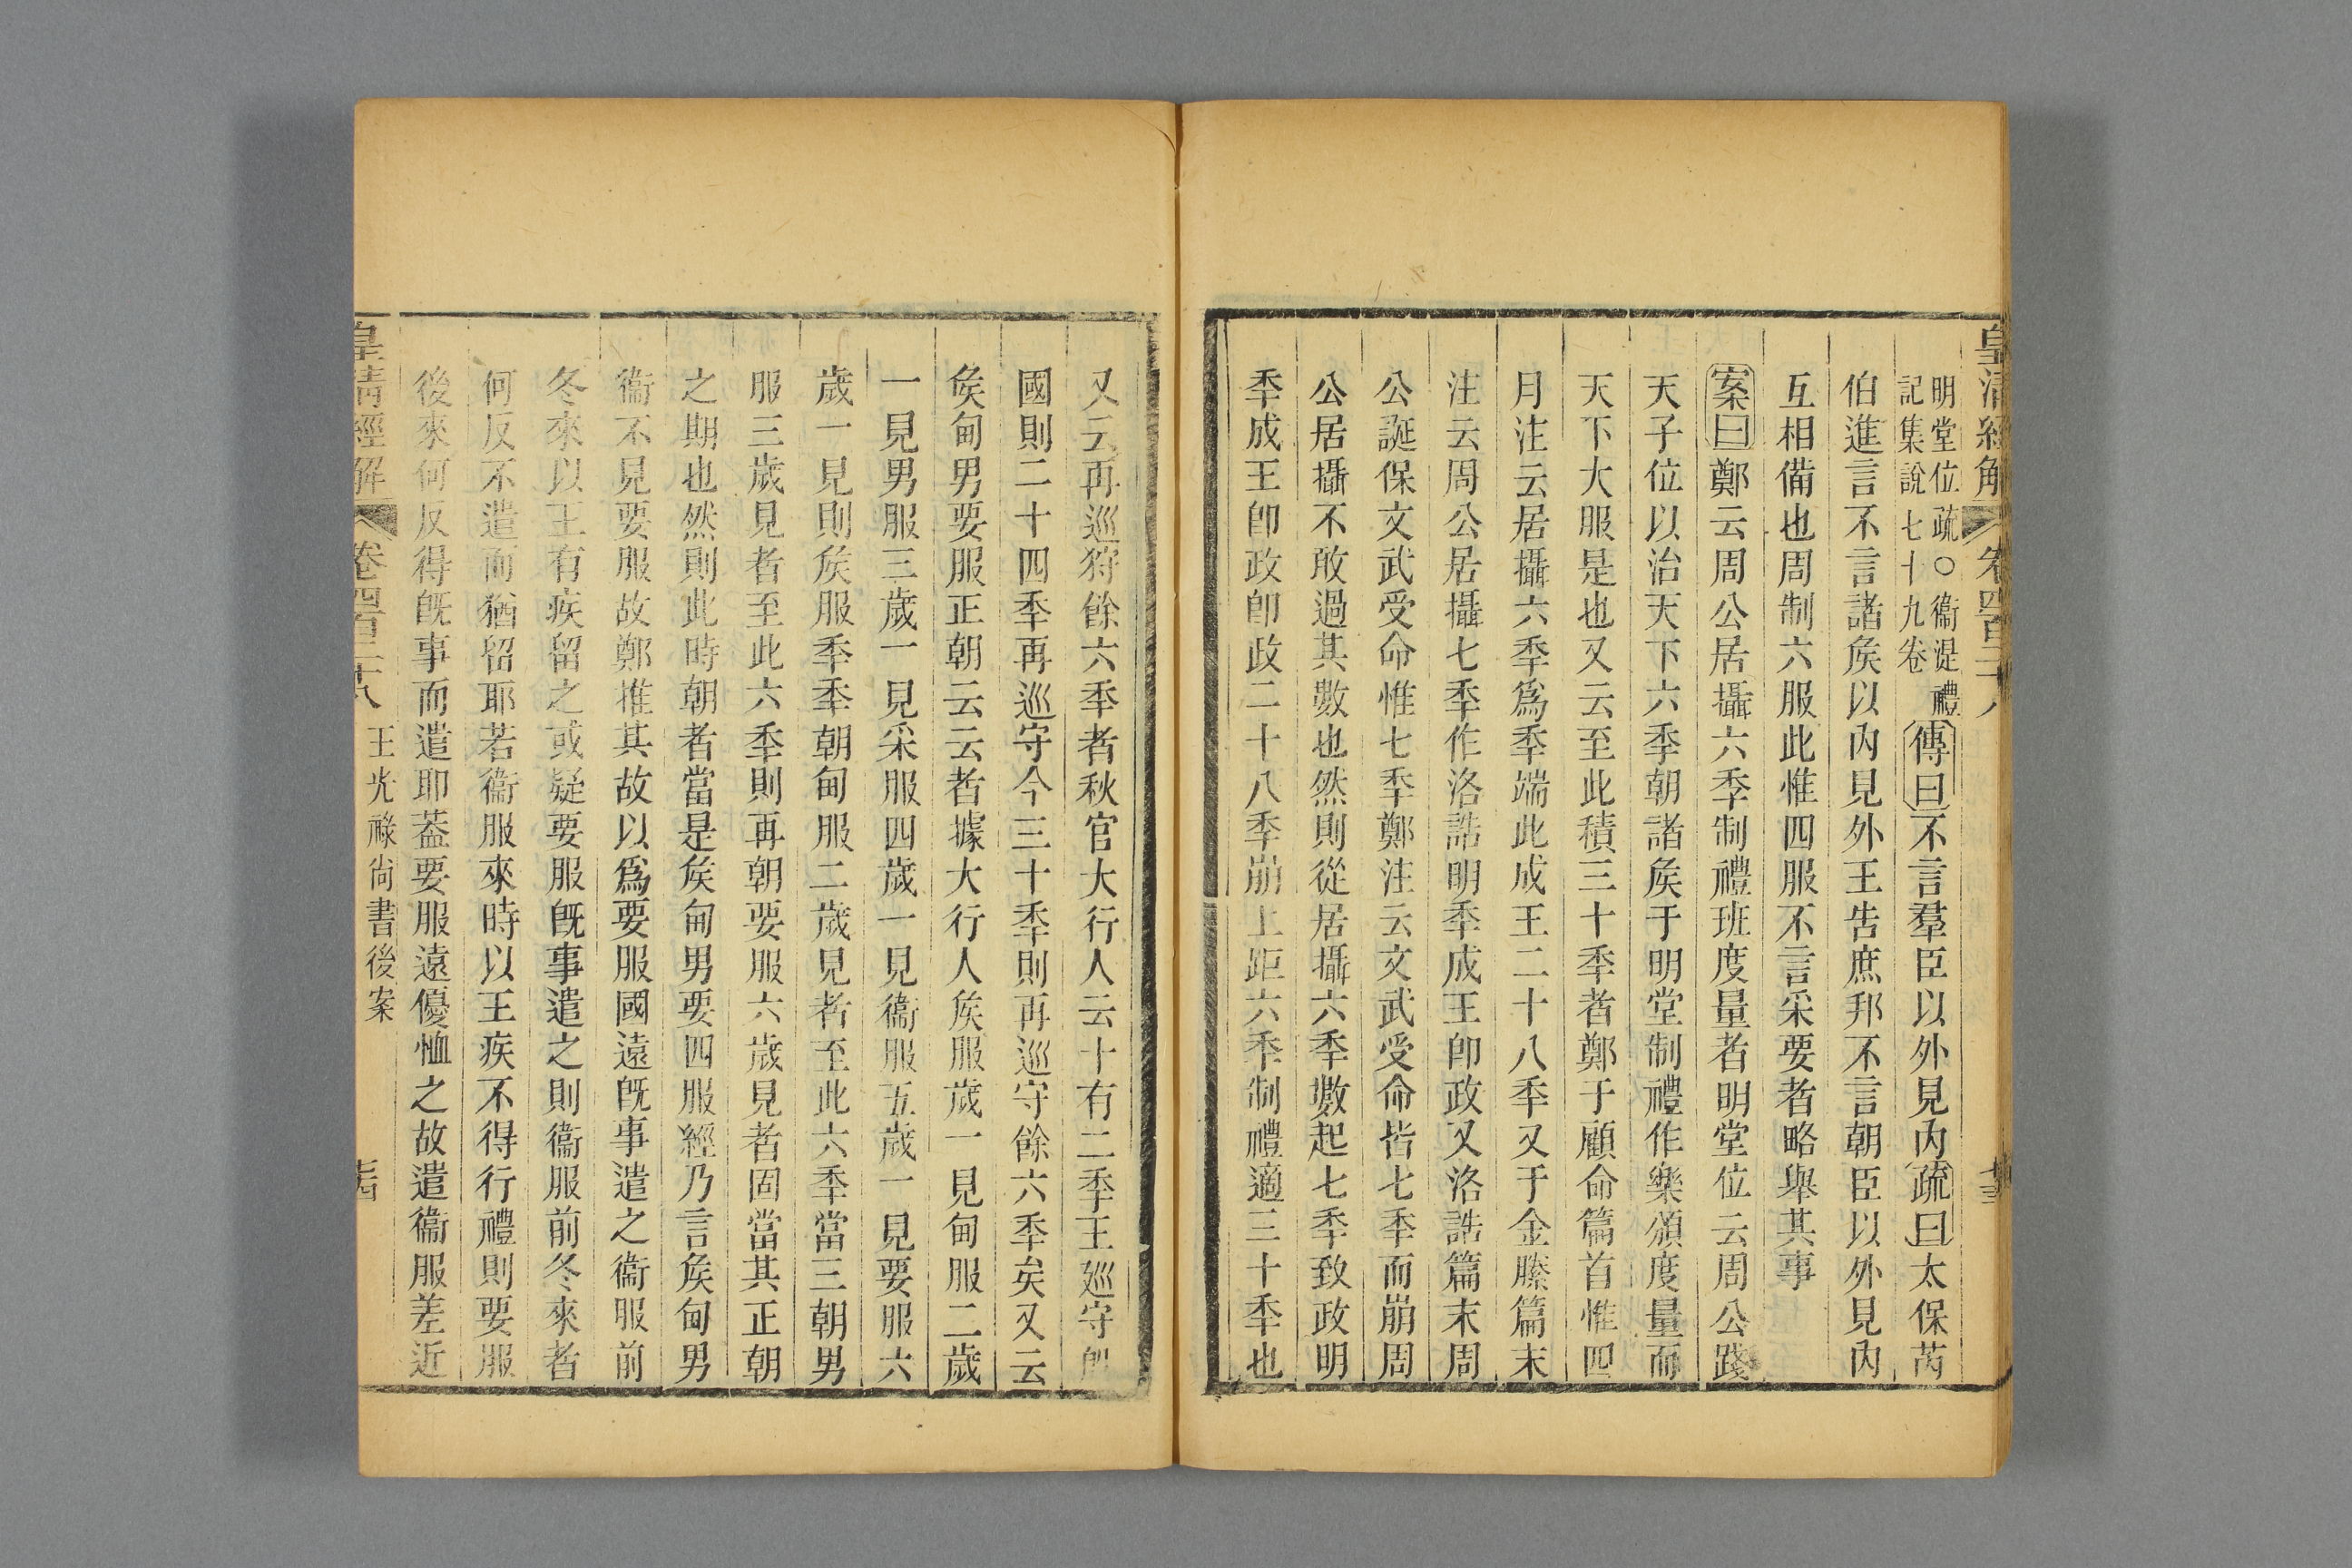 皇清經解 卷四百二十八 十三
明堂位疏〇衞湜禮
記集說七十九卷
傳曰不言羣臣以外見內疏曰太保芮
伯進言不言諸矦以內見外王告庶邦不言朝臣以外見內
互相備也周制六服此惟四服不言采要者略舉其事
案曰鄭云周公居攝六秊制禮班度量者明堂位云周公踐
天子位以治天下六秊朝諸矦于明堂制禮作樂頒度量而
天下大服是也又云至此積三十秊者鄭于顧命篇首惟四
月注云居攝六秊爲秊端此成王二十八秊又于金縢篇末
注云周公居攝七秊作洛誥明秊成王卽政又洛誥篇末周
公誕保文武受命惟七秊鄭注云文武受命皆七秊而崩周
公居攝不敢過其數也然則從居攝六秊數起七秊致政明
秊成王卽政卽政二十八秊崩上距六秊制禮適三十秊也
又云再巡狩餘六秊者秋官大行人云十有二秊王巡守
國則二十四秊再巡守今三十秊則再巡守餘六秊矣又云
矦甸男要服正朝云云者據大行人矦服歲一見甸服二歲
一見男服三歲一見采服四歲一見衞服五歲一見要服六
歲一見則矦服秊秊朝甸服二歲見者至此六秊當三朝男
服三歲見者至此六秊則再朝要服六歲見者固當其正朝
之期也然則此時朝者當是矦甸男要四服經乃言矦甸男
衞不見要服故鄭推其故以爲要服國遠旣事遣之衞服前
冬來以王有疾留之或疑要服旣事遣之則衞服前冬來者
何反不遣而猶留耶若衞服來時以王疾不得行禮則要服
後來何反得旣事而遣耶葢要服遠優恤之故遣衞服差近
皇清經解 卷四百二十八 王光祿尚書後案 十四